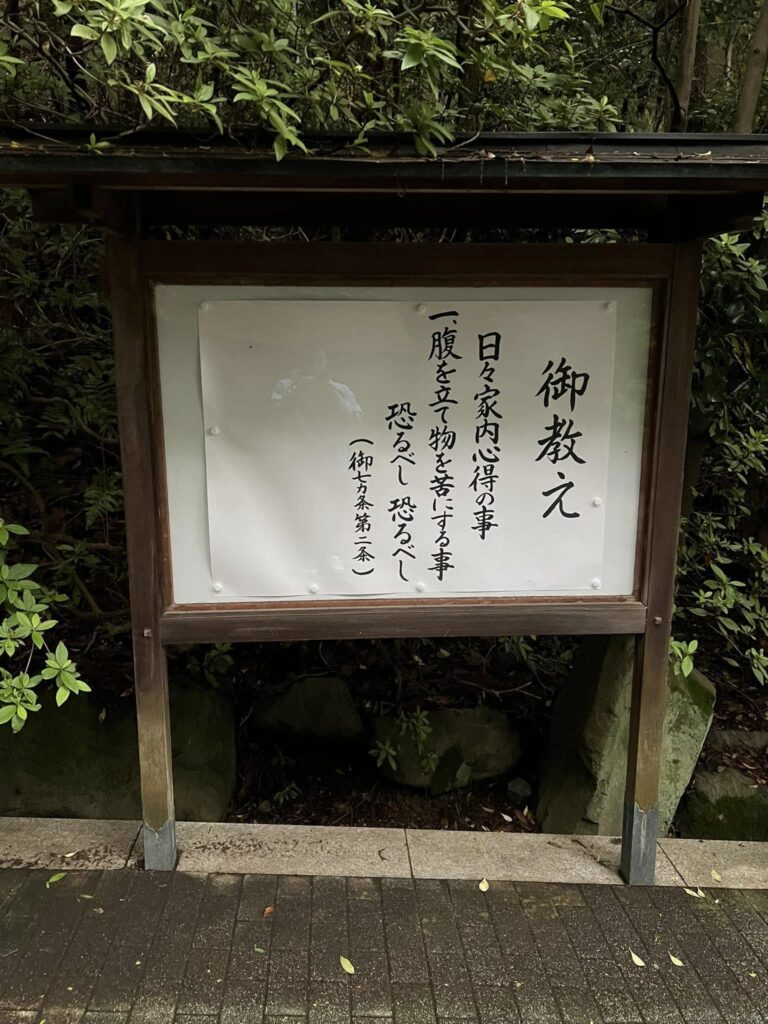 御教え
日々家内心得の事
一、腹を立て物を苦にする事
恐るべし 恐るべし
(御七カ条第二条)